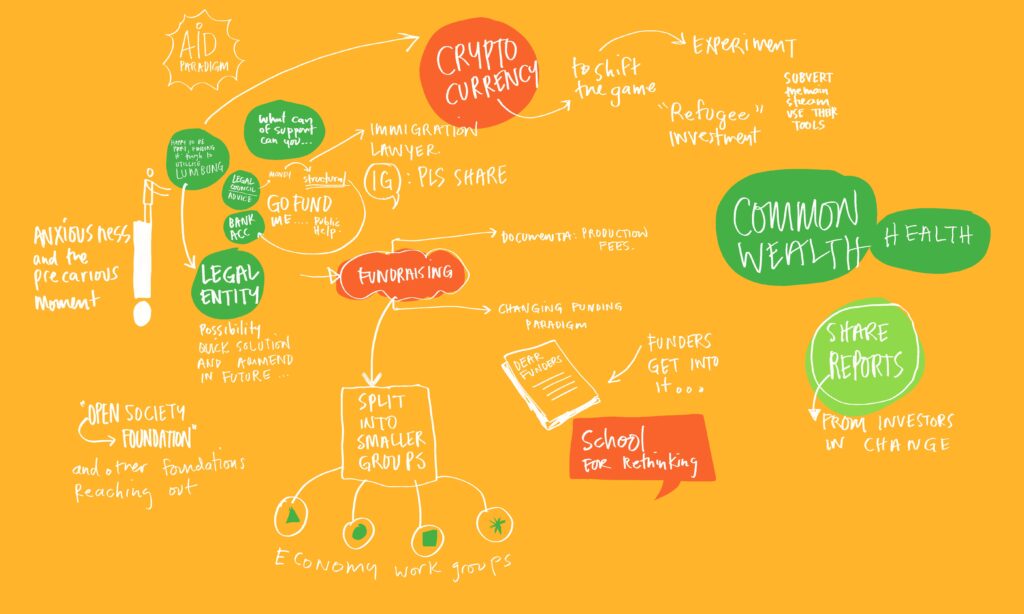 AID
PARADIGM
CRYPTO
CURRENCY
to shift
the game
EXPERIMENT
"Refugee"
investment
SUBVERT
the main
stream
USE THEIR
TOOLS
What can
of support
can you...
HAPPY TO BE
UTILISING
LUMBUNG
IMMIGRATION
LAWYER
IG : PLS SHARE
LEGAL
COUNCIL
ADVICE
MONEY
structural
GO FUND
ME.... Public
Help.
BANK
ACC
ANXIOUSNESS
and the
precarious
Moment
LEGAL
ENTITY
Possibility
QUICK SOLUTION
AND AMMEND
IN FUTURE ...
FUNDRAISING
DOCUMENTA: PRODUCTION
FEES.
CHANGING FUNDING
PARADIGM
DEAR
FUNDERS
FUNDERS
GET INTO
IT...
School
FOR Rethinking
COMMON
WEALTH
HEALTH
SHARE
REPORTS
FROM INVESTORS
IN CHANGE
"OPEN SOCIETY
FOUNDATION"
and other foundations
Reaching out
SPLIT
INTO
SMALLER
GROUPS
ECONOMY work groups